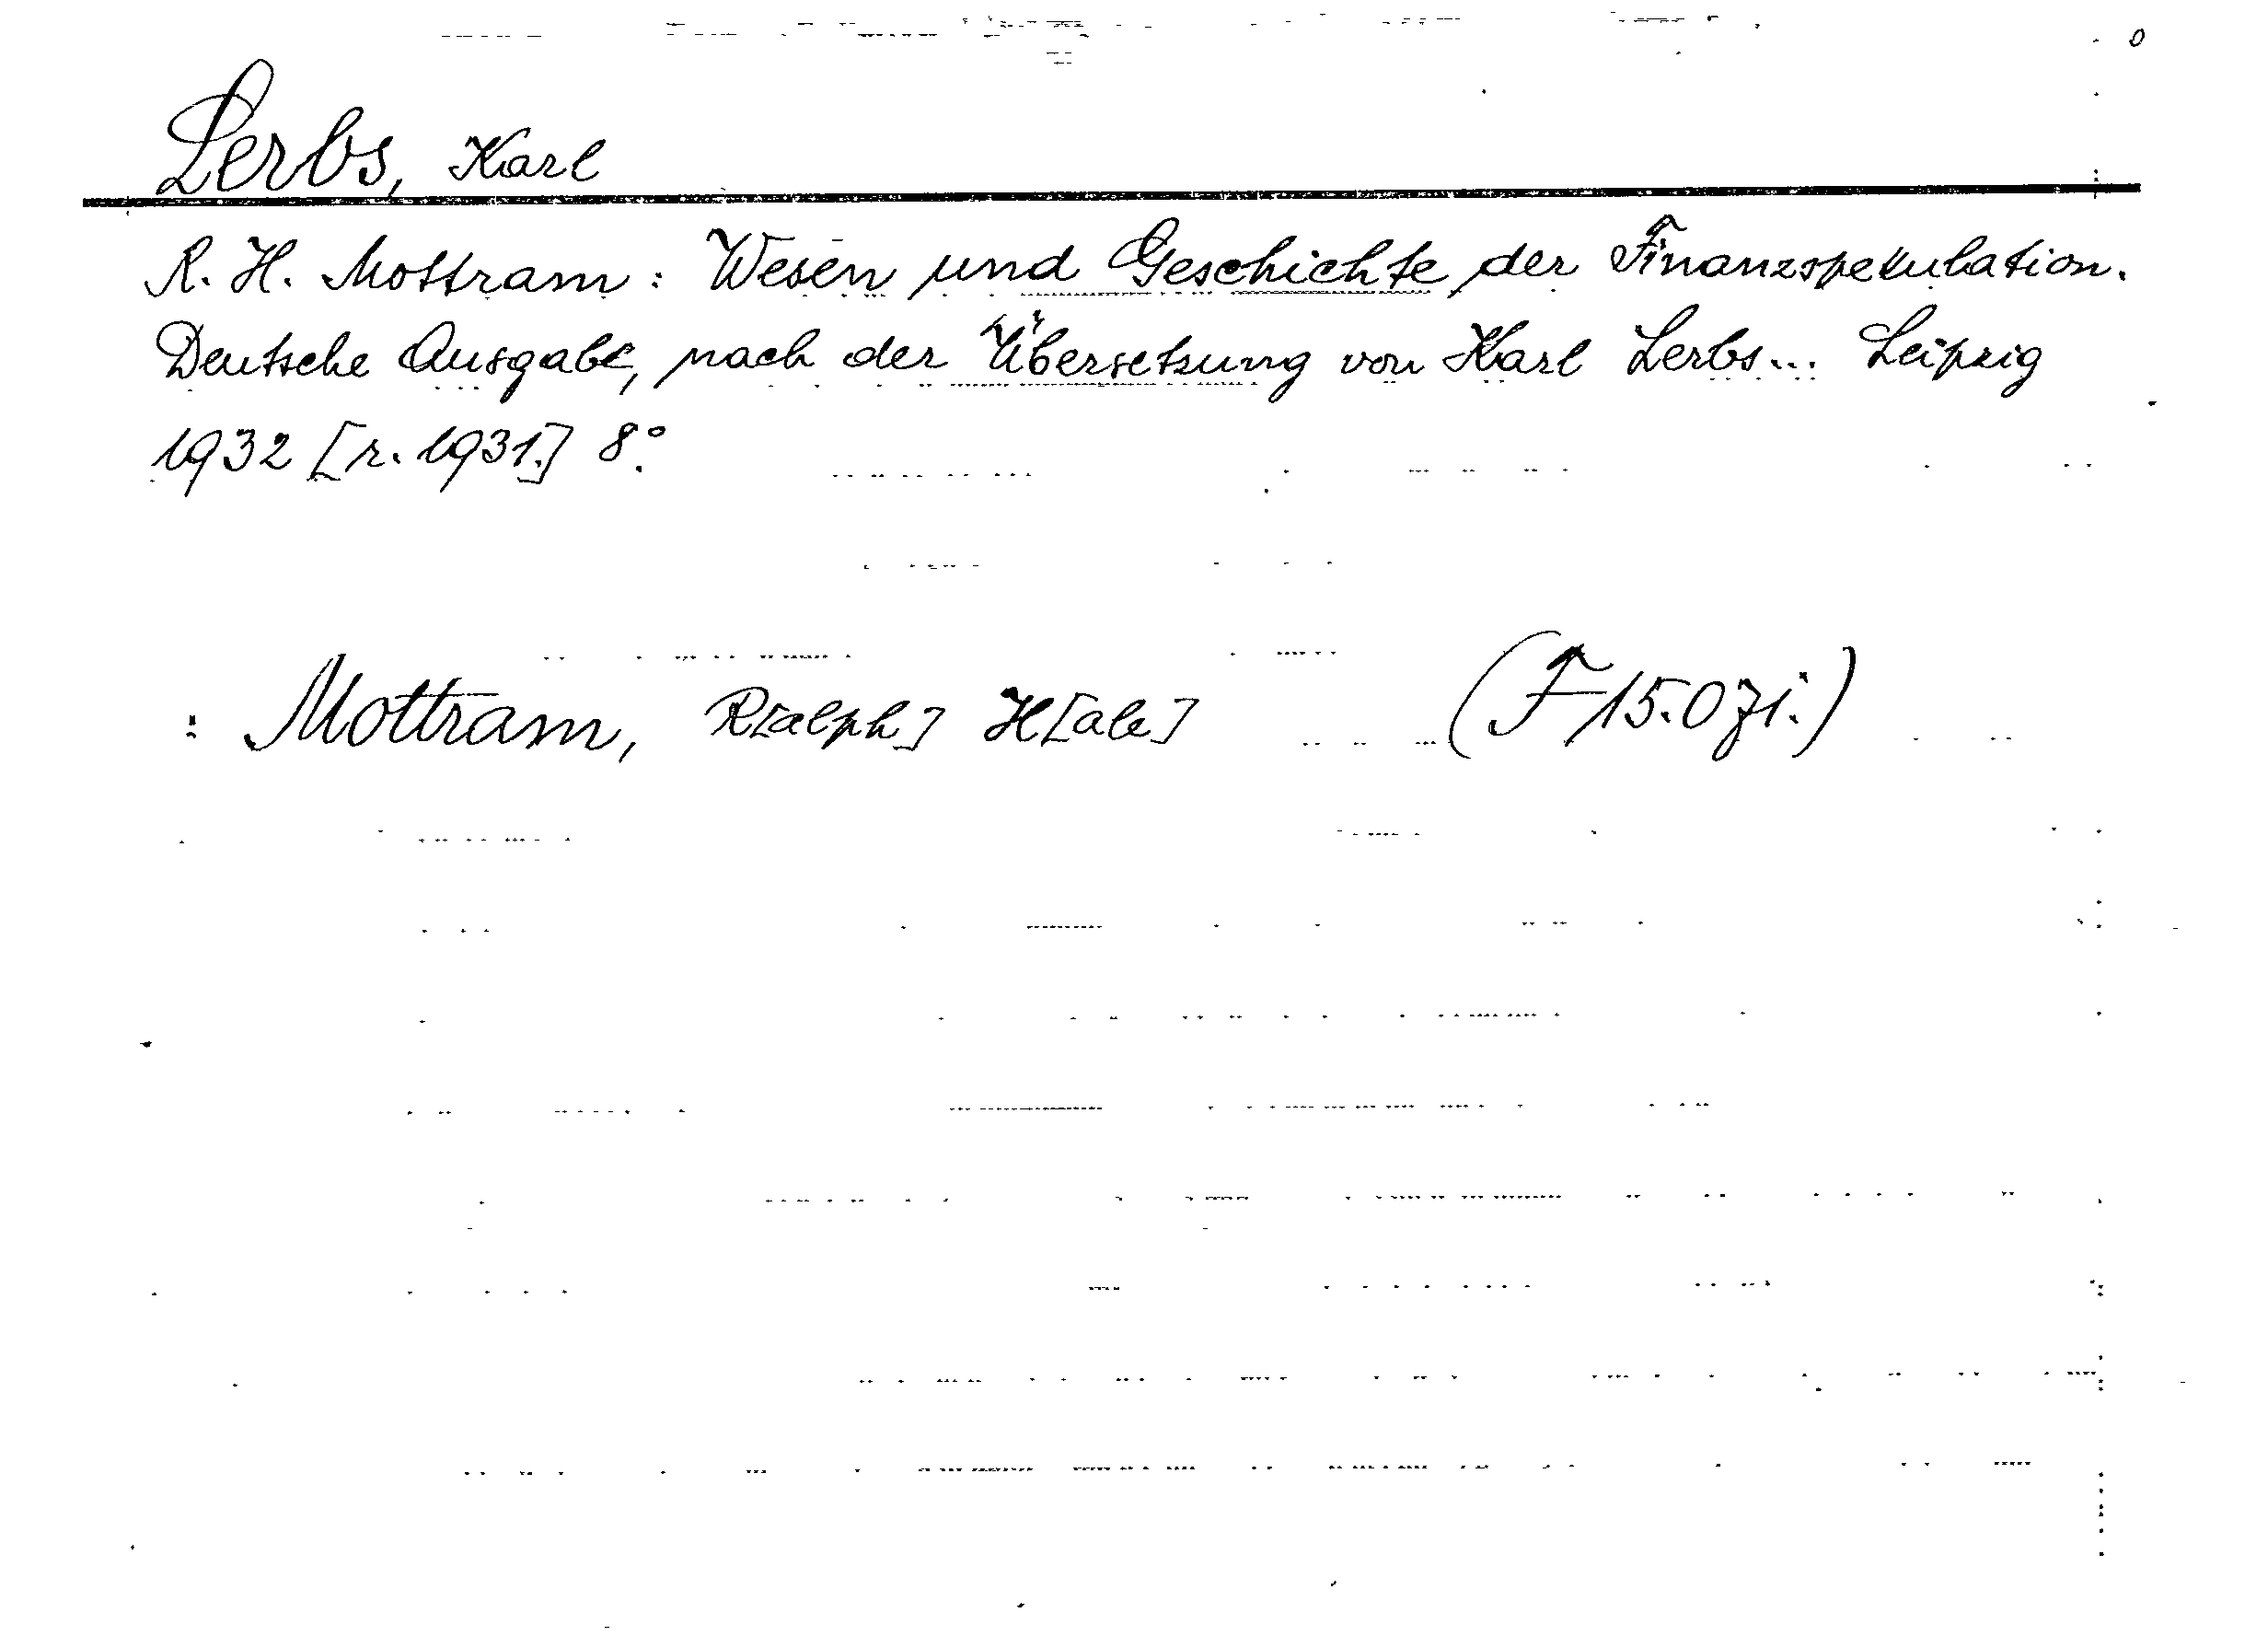 Lerbs, Karl
R. H. Mottram: Wesen und Geschichte der Finanzspekulation.
Deutsche Ausgabe, nach der Übersetzung von Karl Lerbs... Leipzig
1932 [r. 1931.] 8°.
: Mottram, R[alph] H[ale] (F 15.0 zi.)